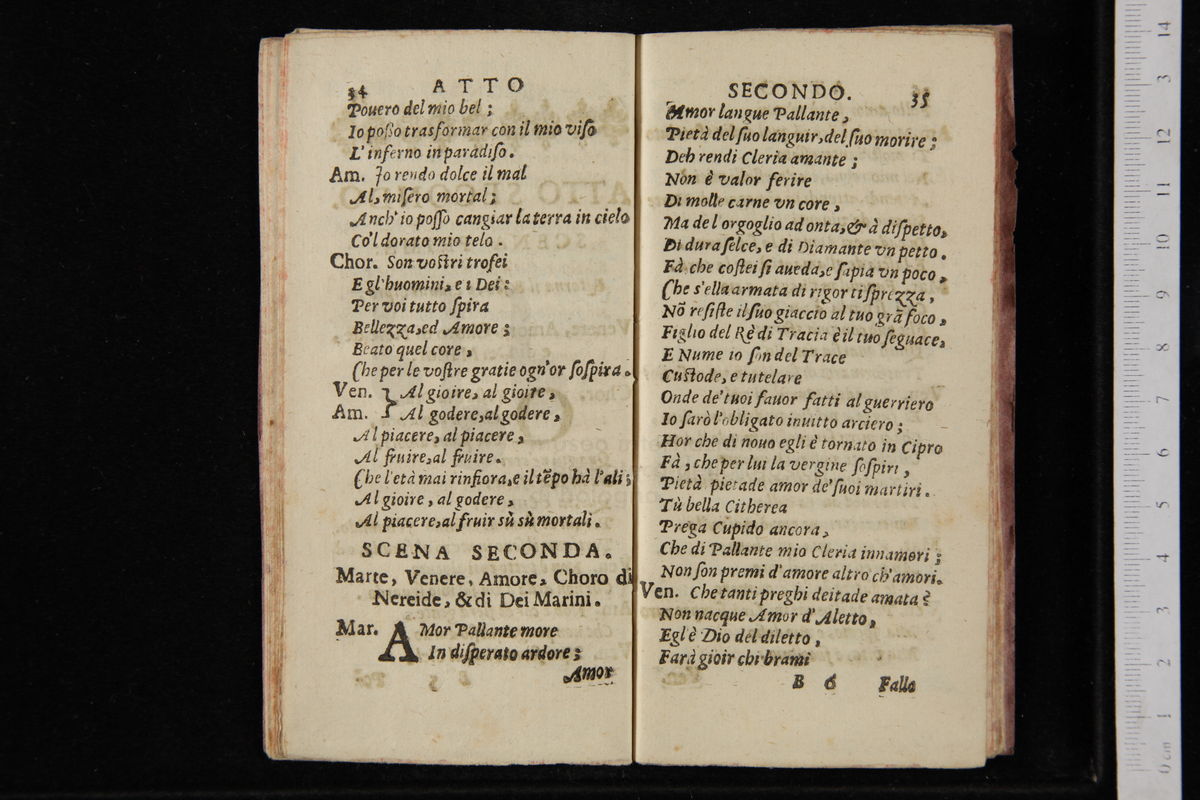 34 ATTO
Pouero del mio bel;
Io posso trasformar con il mio viso
L'inferno in paradiso.
Am. Io rendo dolce il mal
Al, misero mortal;
Anch'io posso cangiar la terra in cielo
Co'l dorato mio telo.
Chor. Son vostri trofei
E gl'huomini, e i Dei:
Per voi tutto spira
Bellezza, ed Amore;
Beato quel core,
Che per le vostre gratie ogn'or sospira.
Ven. } Al gioire, al gioire,
Am. } Al godere, al godere,
Al piacere, al piacere,
Al fruire, al fruire.
Che l'età mai rinfiora, e il tẽpo hà l'ali;
Al gioire, al godere,
Al piacere, al fruir sù sù mortali.
SCENA SECONDA.
Marte, Venere, Amore, Choro di
Nereide, & di Dei Marini.
Mar. AMor Pallante more
In disperato ardore;
Amor
SECONDO. 35
Amor langue Pallante,
Pietà del suo languir, del suo morire;
Deh rendi Cleria amante;
Non è valor ferire
Di molle carne vn core,
Ma del orgoglio ad onta, & à dispetto,
Di dura selce, e di Diamante vn petto.
Fà che costei si aueda, e sapia vn poco,
Che s'ella armata di rigor ti sprezza,
Nõ resiste il suo giaccio al tuo grã foco,
Figlio del Rè di Tracia è il tuo seguace,
E Nume io son del Trace
Custode, e tutelare
Onde de'tuoi fauor fatti al guerriero
Io sarò l'obligato inuitto arciero;
Hor che di nouo egli è tornato in Cipro
Fà, che per lui la vergine sospiri,
Pietà pietade amor de'suoi martiri.
Tù bella Citherea
Prega Cupido ancora,
Che di Pallante mio Cleria innamori;
Non son premi d'amore altro ch'amori.
Ven. Che tanti preghi deitade amata?
Non nacque Amor d'Aletto,
Egl'è Dio del diletto,
Farà gioir chi brami
B 6 Fallo
0 cm 1 2 3 4 5 6 7 8 9 10 11 12 3 14